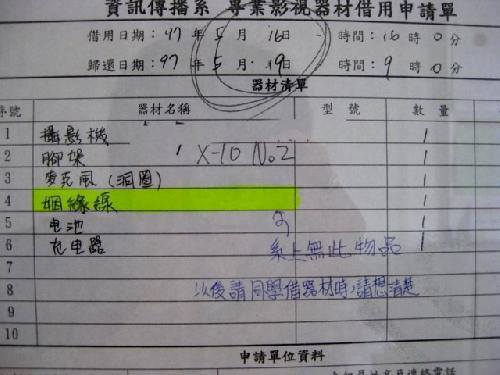 資訊傳播系 專業影視器材借用申請單
借用日期：97 年 5 月 16日 時間：16 時 0 分
歸還日期：97 年 5 月 19日 時間：9 時 0 分
器材清單
序號 器材名稱 型號 數量
1 攝影機 1
2 腳架 X-10 No.2 1
3 麥克風(洞圈) 1
4 姻緣線 1
5 电池 1
6 充电器 1
系上無此物品
7
8 以後請同學借器材時，請想清楚
9
10
申請單位資料